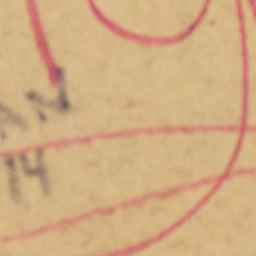 AN
14